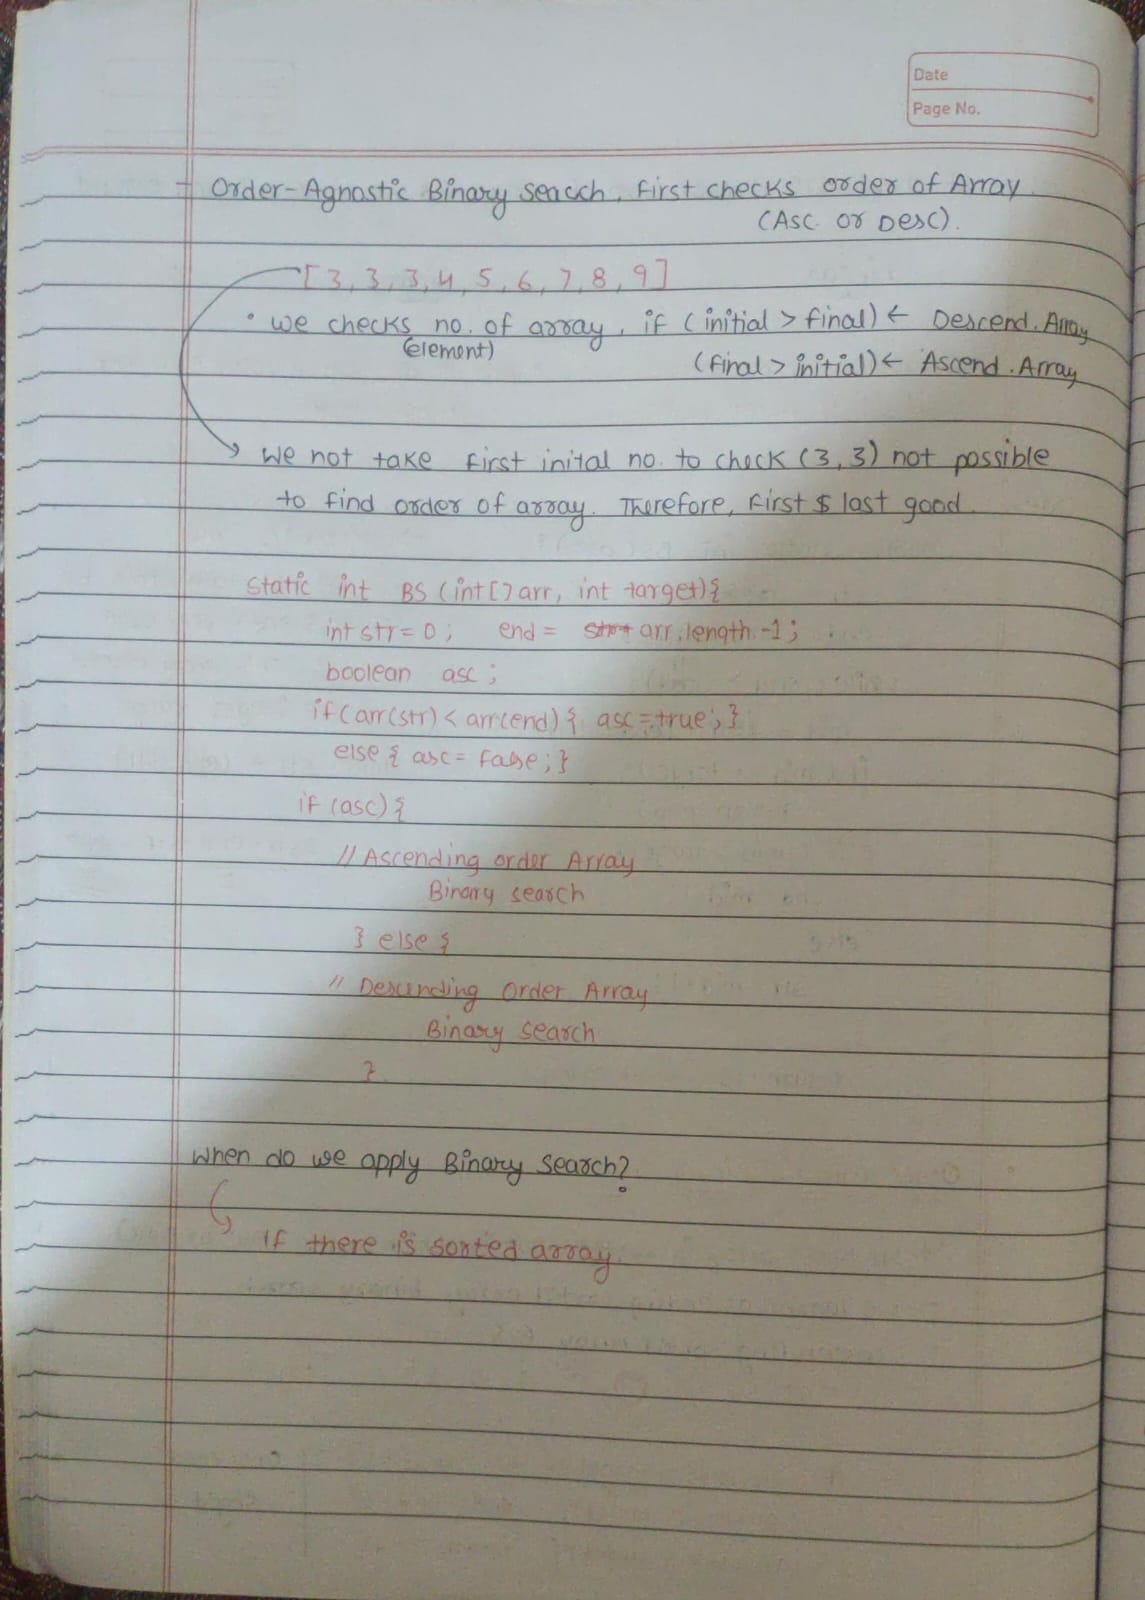 Date
Page No.
- Order-Agnostic Binary search, First checks order of Array
(Asc. or Desc).
[3, 3, 3, 4, 5, 6, 7, 8, 9]
• we checks no. of array, if (initial > final) ← Descend. Array
(element)
(final > initial) ← Ascend. Array
We not take first inital no. to check (3, 3) not possible
to find order of array. Therefore, First $ last good.
Static int BS (int[] arr, int target){
int str = 0; end = arr.length -1;
boolean asc;
if (arr(str) < arr(end) { asc = true; }
else { asc = False; }
if (asc) {
// Ascending order Array
Binary search
} else {
// Descending Order Array
Binary search
}
When do we apply Binary Search?
If there is sorted array.